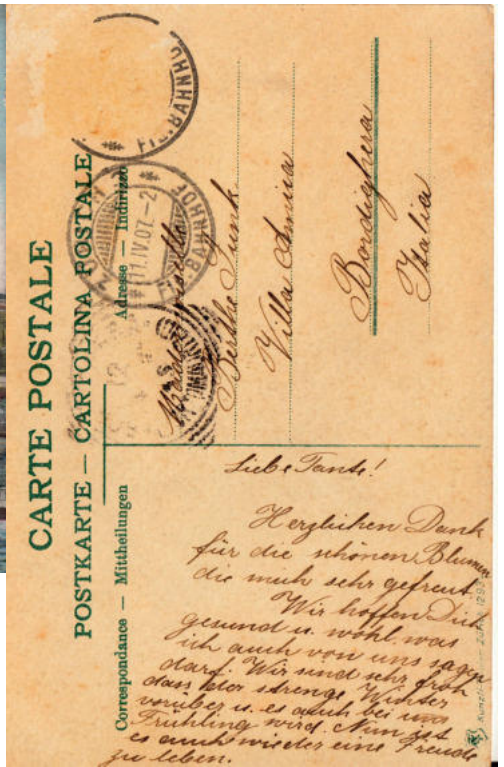 CARTE POSTALE
POSTKARTE — CARTOLINA POSTALE
Correspondance — Mittheilungen
Adresse — Indirizzo
FIL.BAHNHO
FIL.BAHNHOF
11.IV.07-2
Berthe Funk
Villa
Bordighera
Italia
Liebe Tante!
Herzlichen Dank
für die schönen Blumen
die mich sehr gefreut.
Wir hoffen Dich
gesund u. wohl was
ich auch von uns sagen
darf. Wir sind sehr froh
dass der strenge Winter
vorüber u. es auch bei uns
Frühling wird. Nun ist
es auch wieder eine Freude
zu leben.